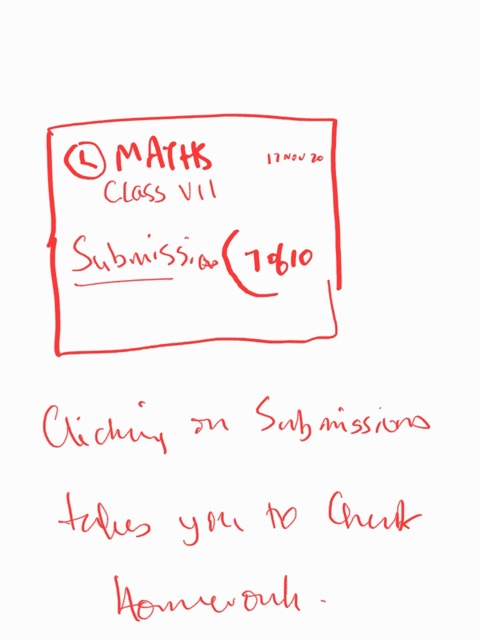 L MATHS 17 NOV 20
Class VII
Submission (7 of 10
Clicking on Submissions
takes you to Check
Homework.